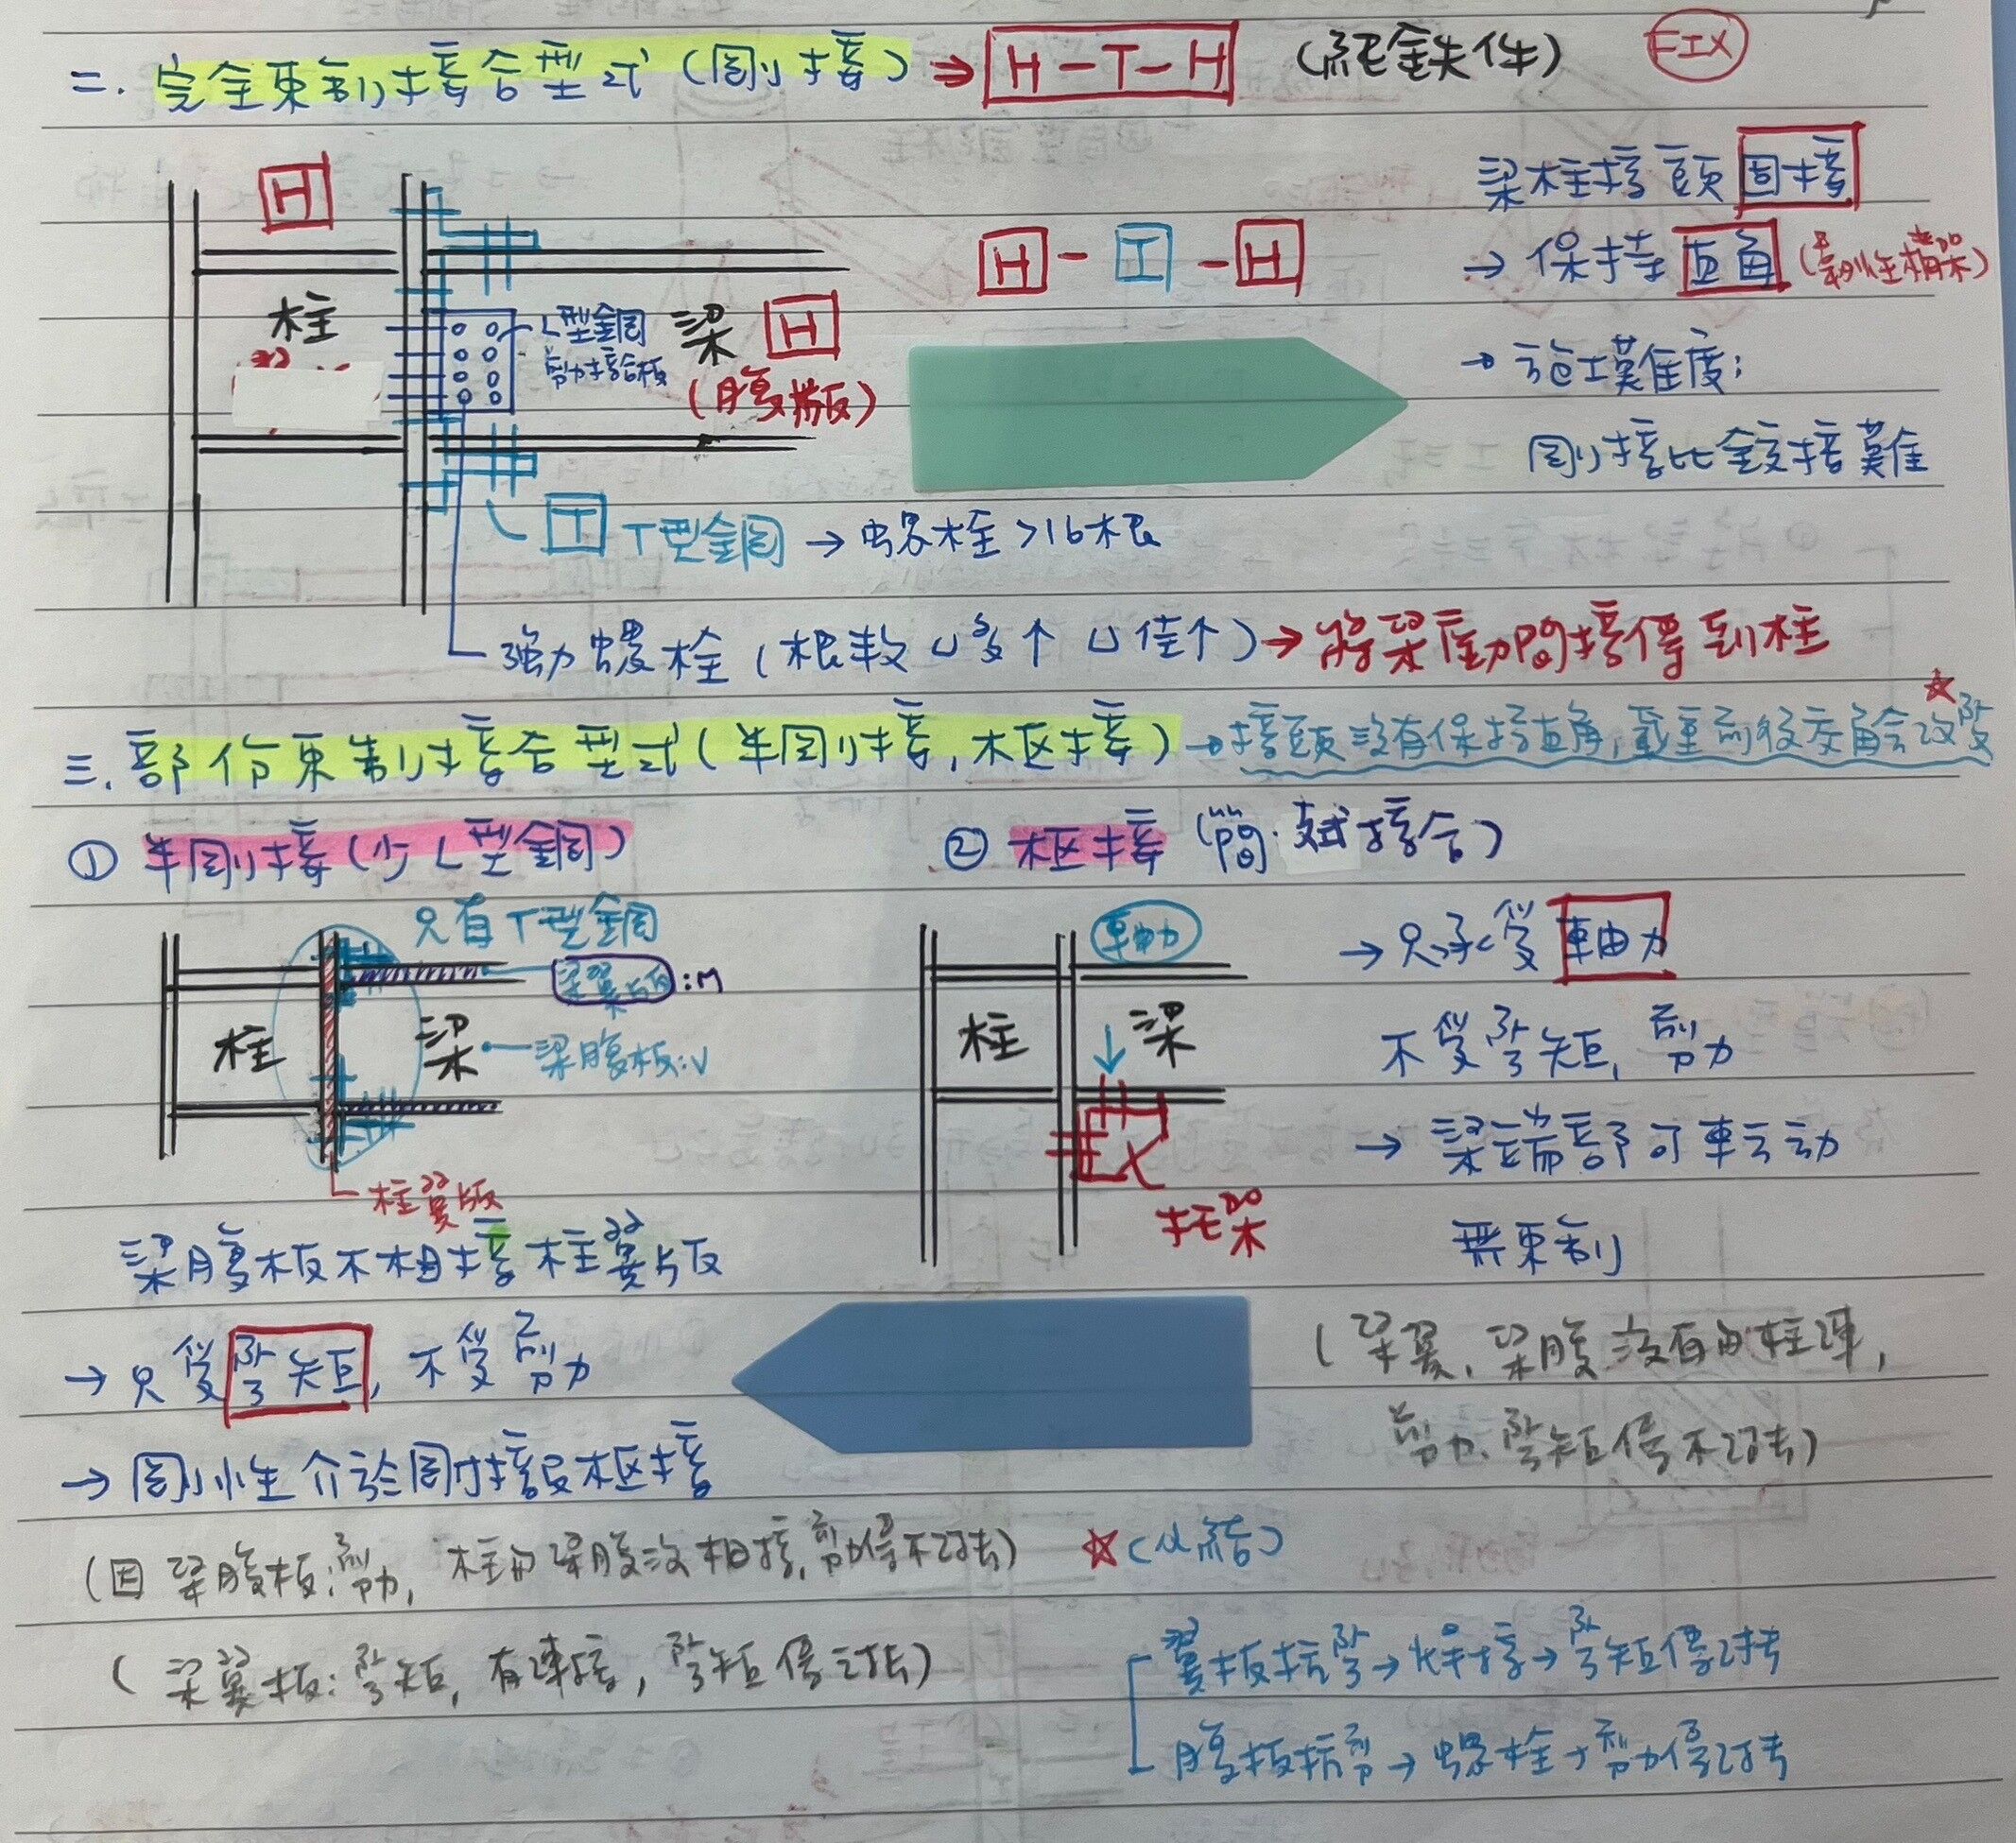 二. 完全束制接合型式 (剛接) ⇒ H-T-H (純鉄件) FIX
H
柱
L型鋼
剪力接合板
梁 H
(腹板)
H - T - H
梁柱接頭固接
→ 保持直角 (剛性構架)
→ 施工難度:
剛接比鉸接難
T T型鋼 → 螺栓 >16根
強力螺栓 (根數ㄩ多↑ㄩ佳↑) → 將梁應力間接傳到柱
三. 部份束制接合型式 (半剛接, 樞接) → 接頭沒有保持直角, 載重前後交角會改變 ☆
① 半剛接 (少L型鋼)
只有T型鋼
梁翼板:M
柱
梁
梁腹板:V
柱翼版
梁腹板不相接柱翼版
→ 只受彎矩, 不受剪力
→ 剛性介於剛接及樞接
(因梁腹板:剪力, 柱的梁腹沒相接, 剪力傳不過去)
(梁翼板: 彎矩, 有連接, 彎矩傳過去)
② 樞接 (簡支式接合)
軸力
柱
梁
托架
→ 只承受軸力
不受彎矩, 剪力
→ 梁端部可轉動
無束制
(梁翼、梁腹沒有的柱連,
剪力、彎矩傳不過去)
☆ (小結)
翼板抗彎→焊接→彎矩傳過去
腹板抗剪→螺栓→剪力傳過去